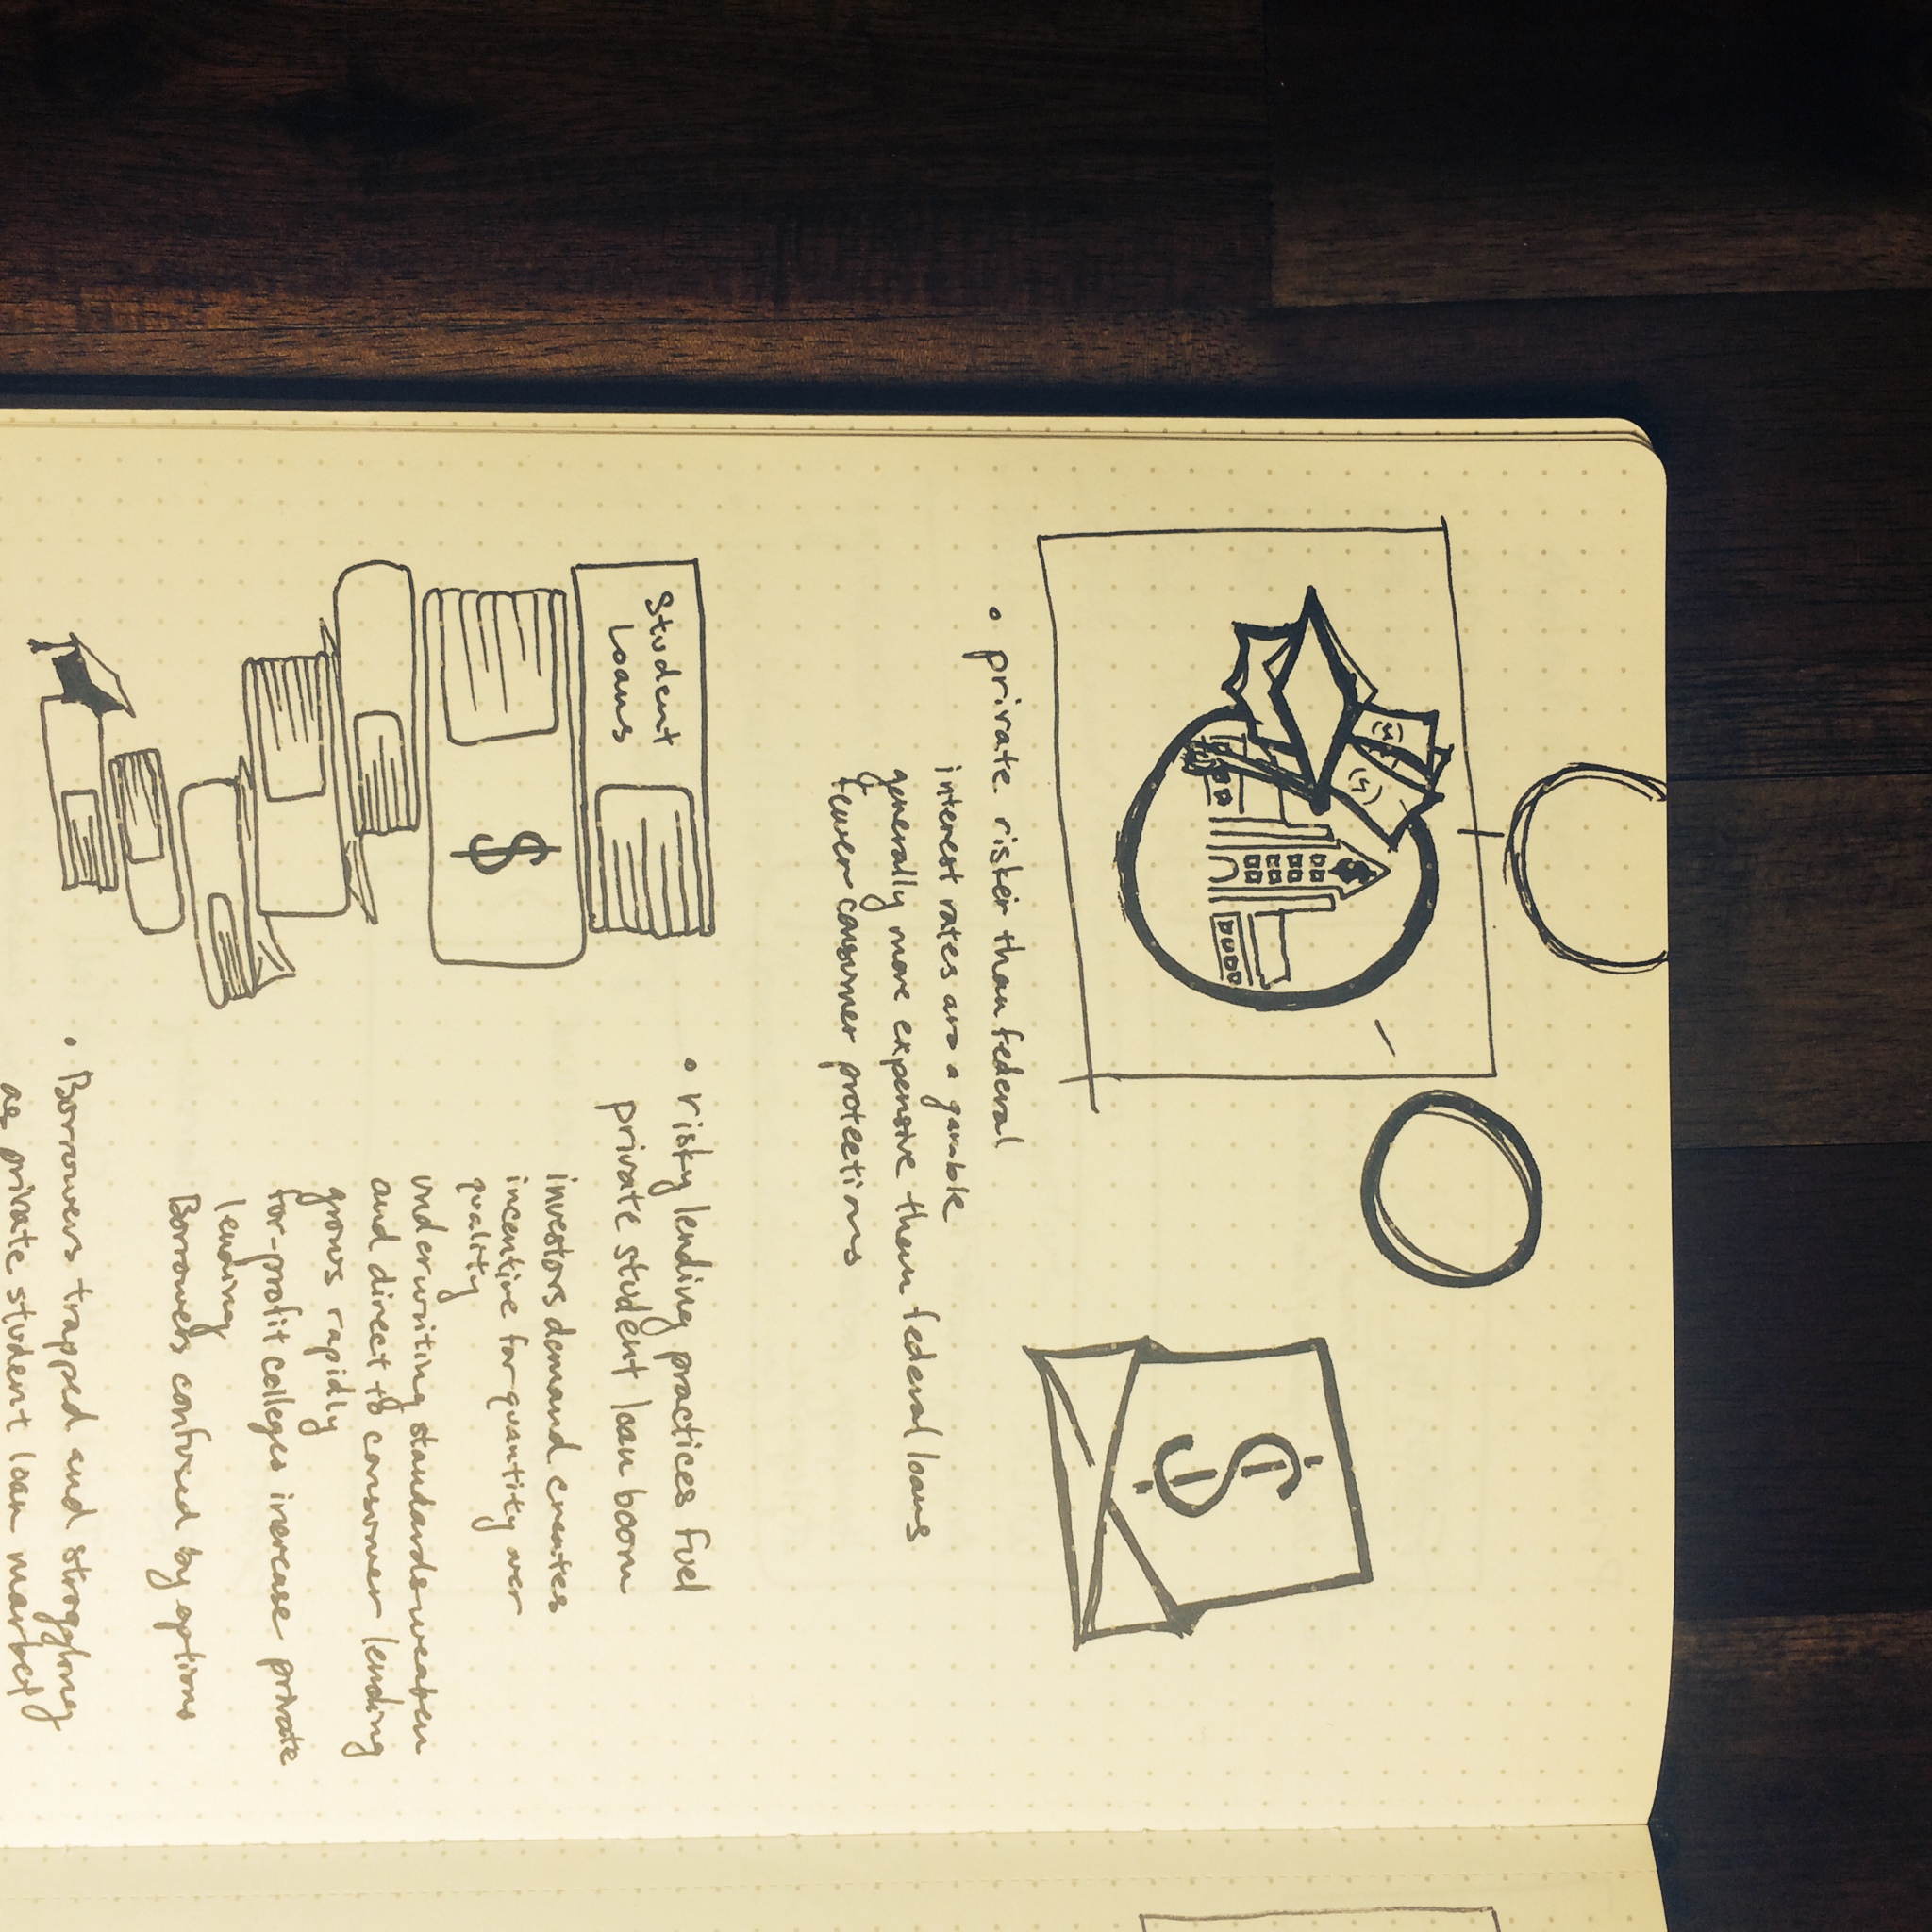 $
• private riskier than federal
interest rates are a gamble
generally more expensive than federal loans
fewer consumer protections
Student
Loans
$
• risky lending practices fuel
private student loan boom
investors demand creates
incentive for quantity over
quality
underwriting standards weaken
and direct to consumer lending
grows rapidly
for-profit colleges increase private
lending
Borrowers confused by options
• Borrowers trapped and struggling
as private student loan market